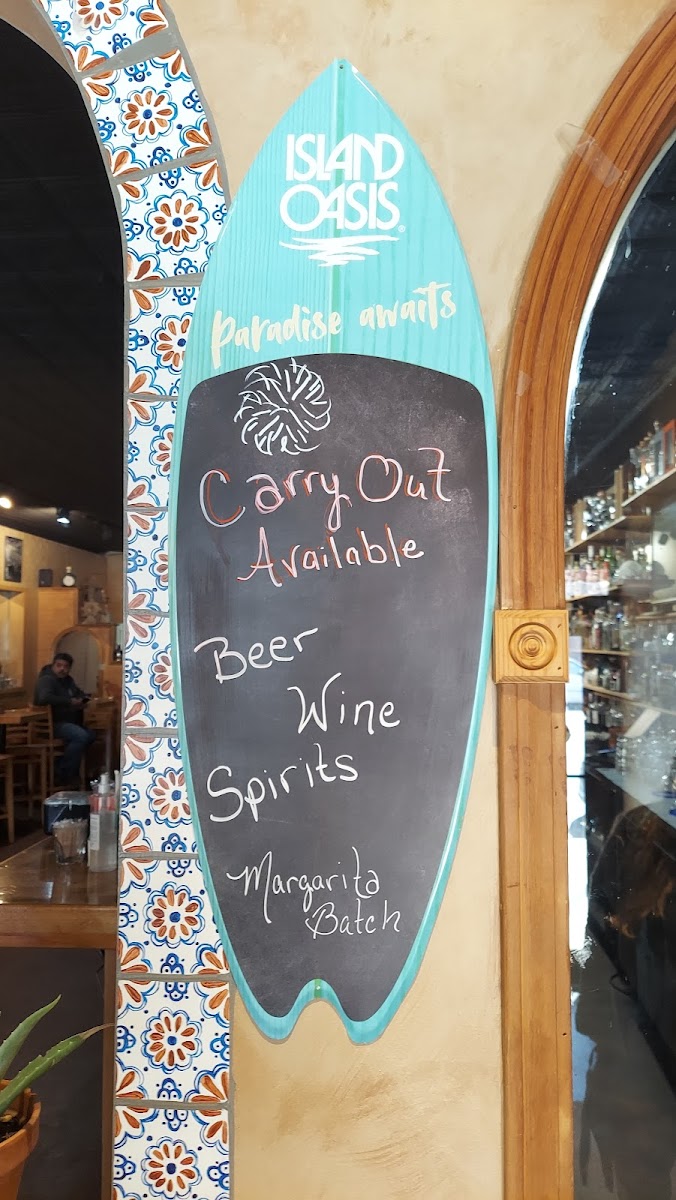 ISLAND
OASIS®
Paradise awaits
Carry Out
Available
Beer
Wine
Spirits
Margarita
Batch